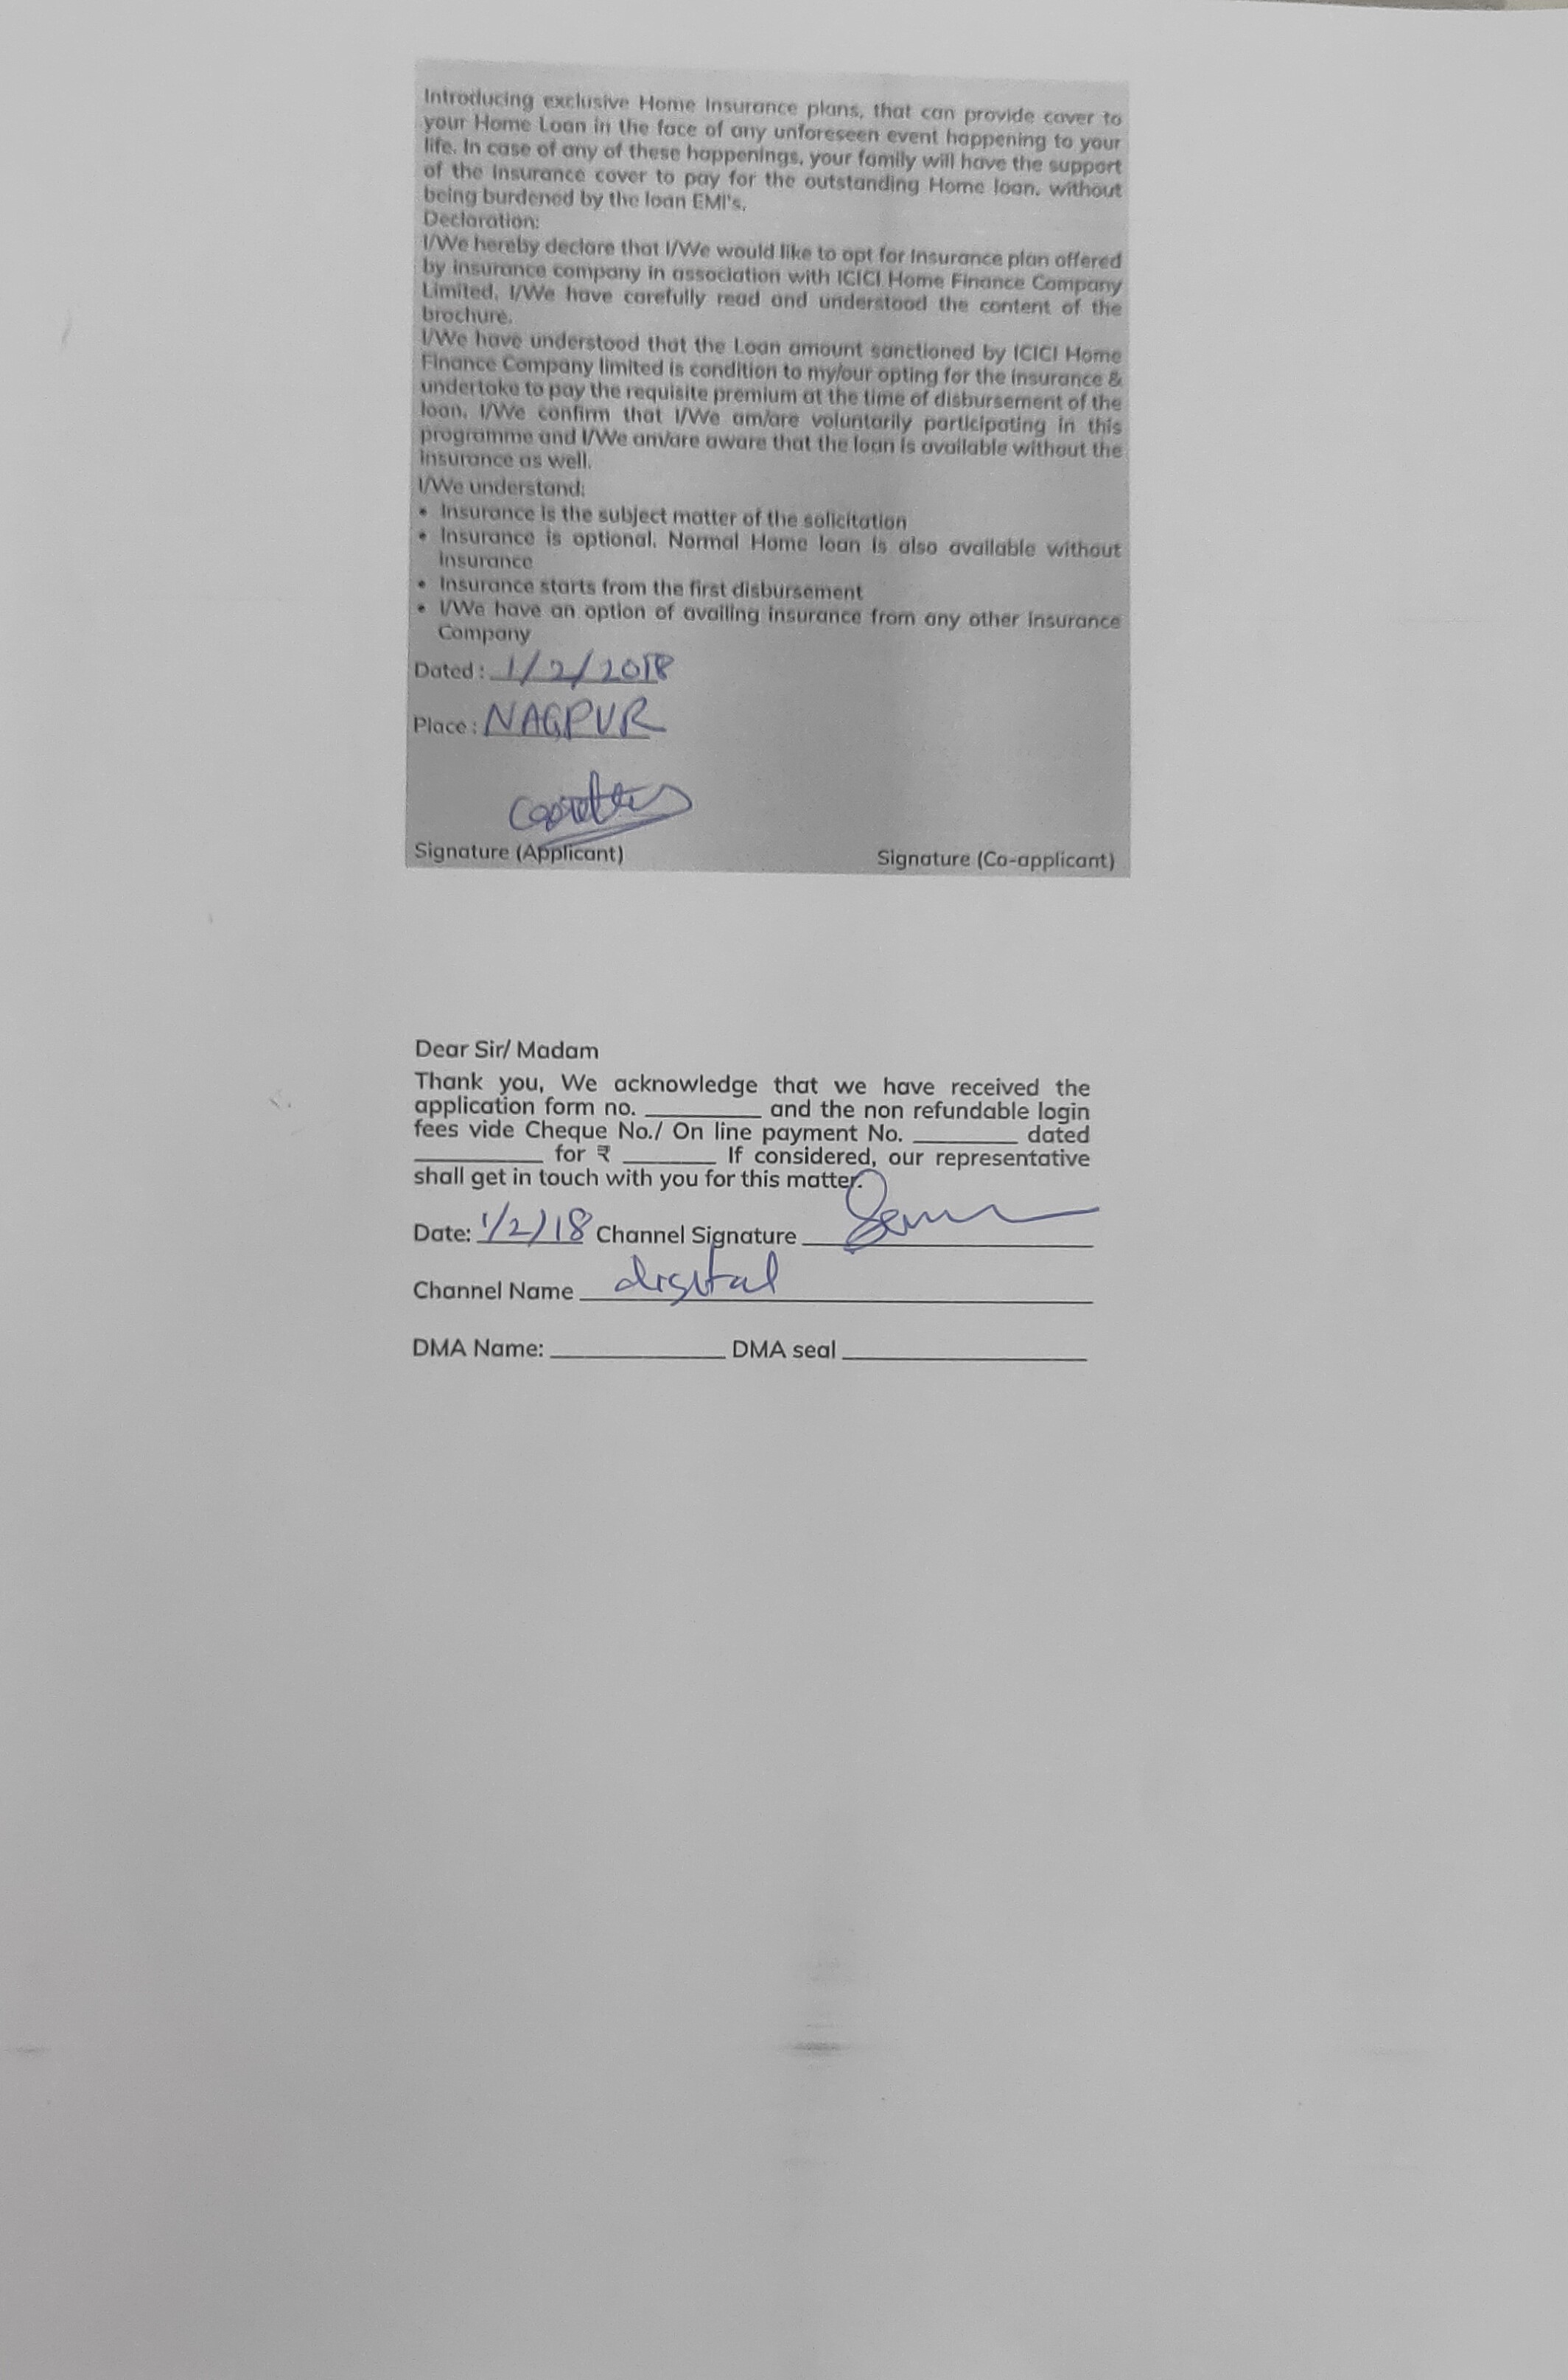 Introducing exclusive Home Insurance plans, that can provide cover to
your Home Loan in the face of any unforeseen event happening to your
life. In case of any of these happenings, your family will have the support
of the Insurance cover to pay for the outstanding Home loan, without
being burdened by the loan EMI's.
Declaration:
I/We hereby declare that I/We would like to opt for Insurance plan offered
by insurance company in association with ICICI Home Finance Company
Limited, I/We have carefully read and understood the content of the
brochure.
I/We have understood that the Loan amount sanctioned by ICICI Home
Finance Company limited is condition to my/our opting for the insurance &
undertake to pay the requisite premium at the time of disbursement of the
loan. I/We confirm that I/We am/are voluntarily participating in this
programme and I/We am/are aware that the loan is available without the
insurance as well.
I/We understand:
• Insurance is the subject matter of the solicitation
• Insurance is optional. Normal Home loan is also available without
Insurance
• Insurance starts from the first disbursement
• I/We have an option of availing insurance from any other Insurance
Company
Dated : 1/2/2018
Place : NAGPUR
Signature (Applicant) Signature (Co-applicant)
Dear Sir/ Madam
Thank you, We acknowledge that we have received the
application form no. _________ and the non refundable login
fees vide Cheque No./ On line payment No. ________ dated
__________ for ₹ _______ If considered, our representative
shall get in touch with you for this matter.
Date: 1/2/18 Channel Signature
Channel Name digital
DMA Name: ______________ DMA seal ___________________